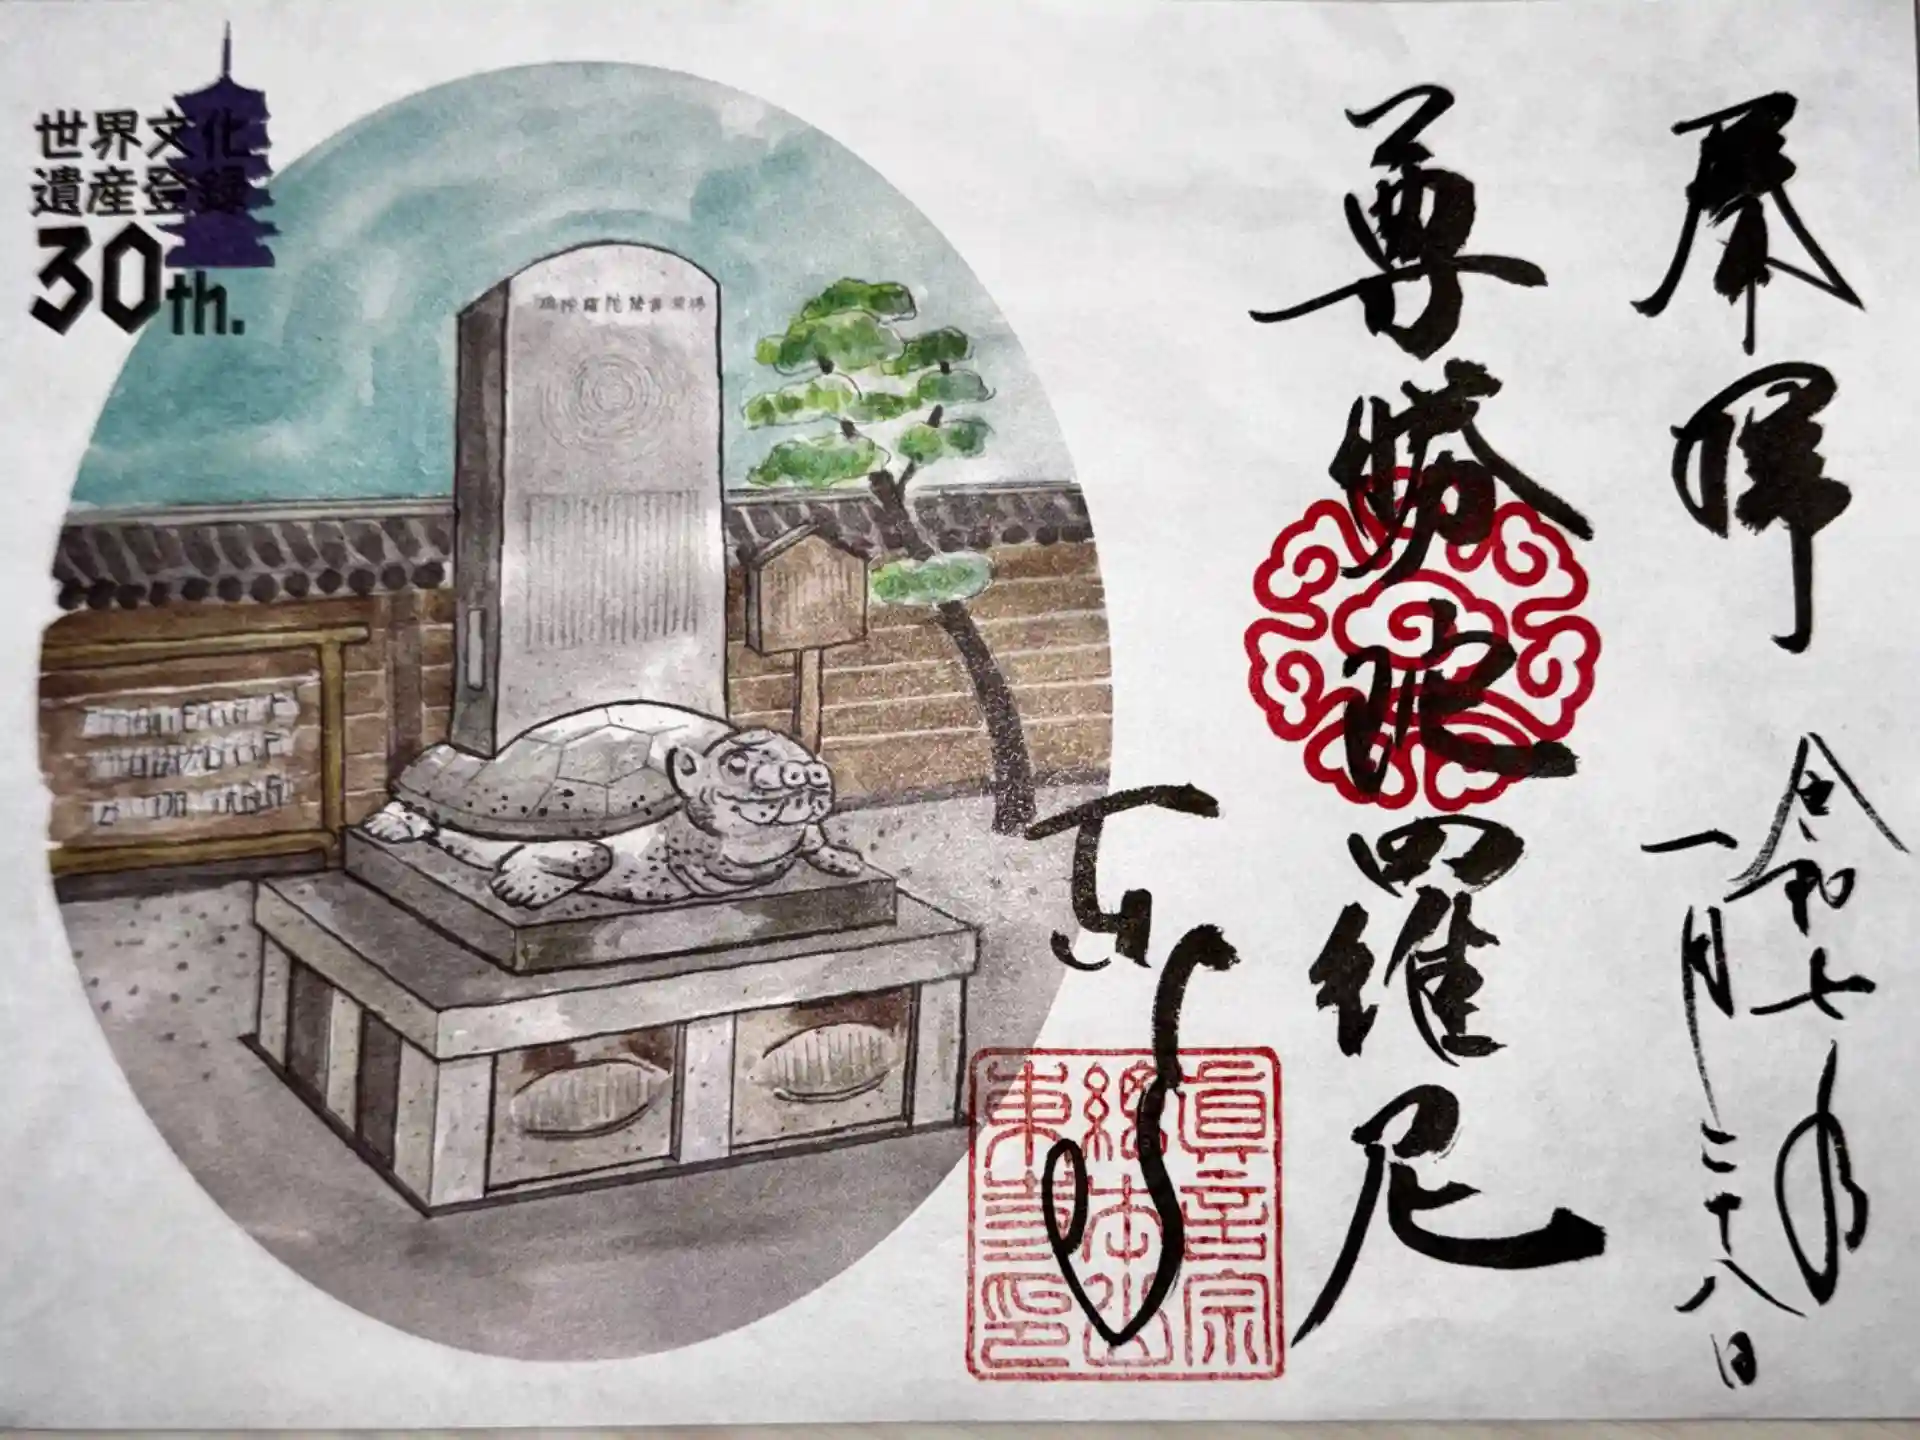 奉拝
令和七年
一月二十八日
尊勝陀羅尼
東寺
真言宗
總本山
東寺印
世界文化
遺産登録
30th.